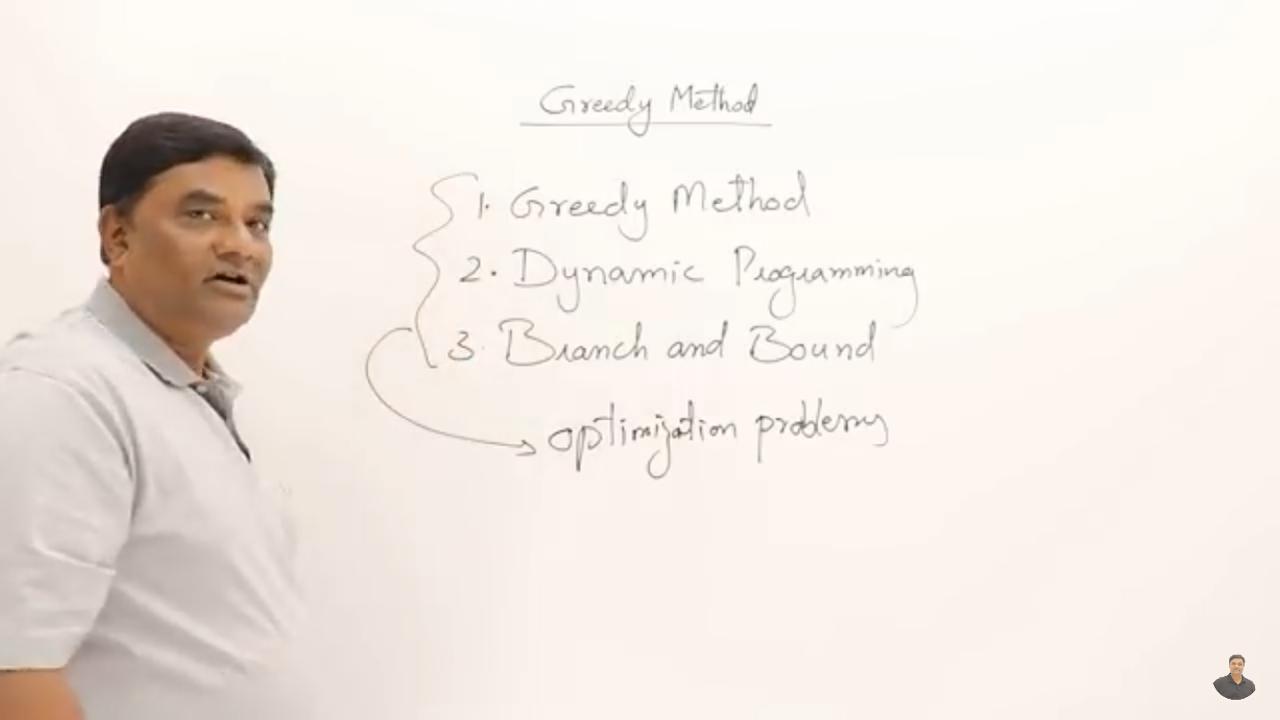 Greedy Method
1. Greedy Method
2. Dynamic Programming
3. Branch and Bound
optimization problems